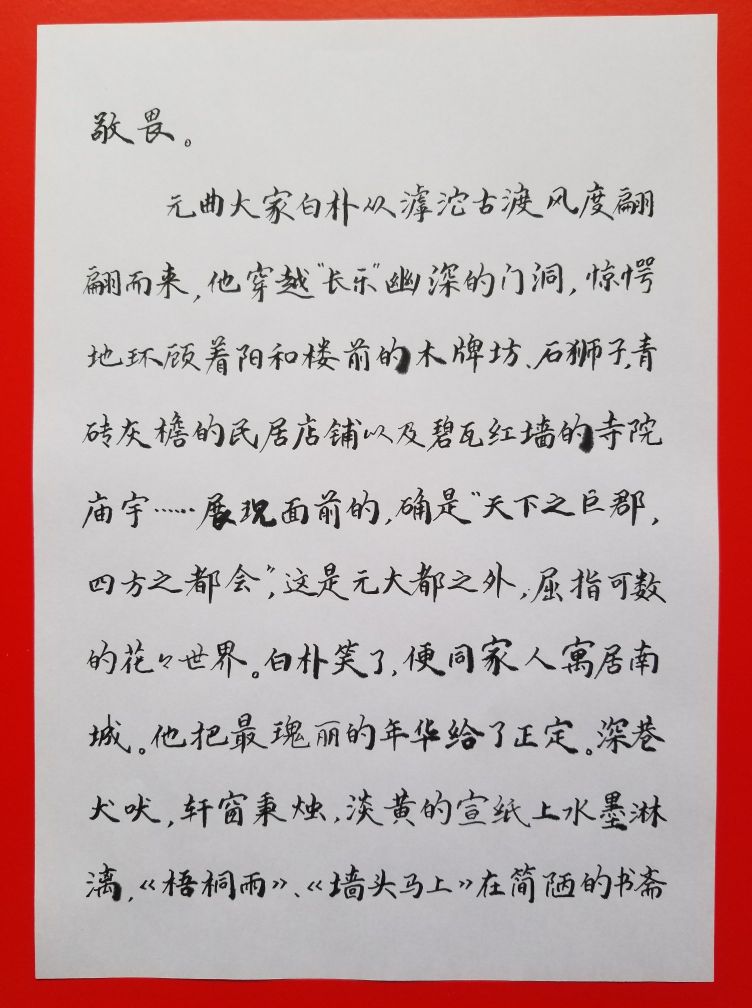 敬畏。
元曲大家白朴从滹沱古渡风度翩
翩而来,他穿越“长乐”幽深的门洞,惊愕
地环顾着阳和楼前的木牌坊、石狮子,青
砖灰檐的民居店铺以及碧瓦红墙的寺院
庙宇……展现面前的,确是“天下之巨郡,
四方之都会”,这是元大都之外,屈指可数
的花々世界。白朴笑了,便同家人寓居南
城。他把最瑰丽的年华给了正定。深巷
犬吠,轩窗秉烛,淡黄的宣纸上水墨淋
漓,《梧桐雨》、《墙头马上》在简陋的书斋